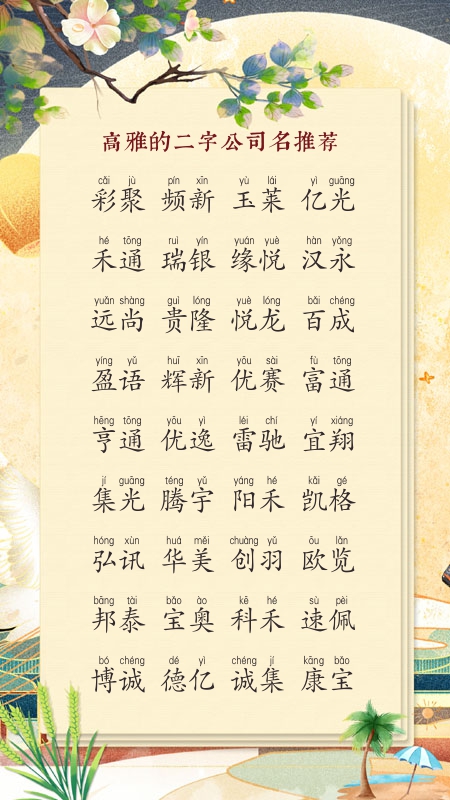 高雅的二字公司名推荐
cǎi jù pín xīn yù lái yì guāng
彩聚 频新 玉莱 亿光
hé tōng ruì yín yuán yuè hàn yǒng
禾通 瑞银 缘悦 汉永
yuǎn shàng guì lóng yuè lóng bǎi chéng
远尚 贵隆 悦龙 百成
yíng yǔ huī xīn yōu sài fù tōng
盈语 辉新 优赛 富通
hēng tōng yōu yì léi chí yí xiáng
亨通 优逸 雷驰 宜翔
jí guāng téng yǔ yáng hé kǎi gé
集光 腾宇 阳禾 凯格
hóng xùn huá měi chuàng yǔ ōu lǎn
弘讯 华美 创羽 欧览
bāng tài bǎo ào kē hé sù pèi
邦泰 宝奥 科禾 速佩
bó chéng dé yì chéng jí kāng bǎo
博诚 德亿 诚集 康宝